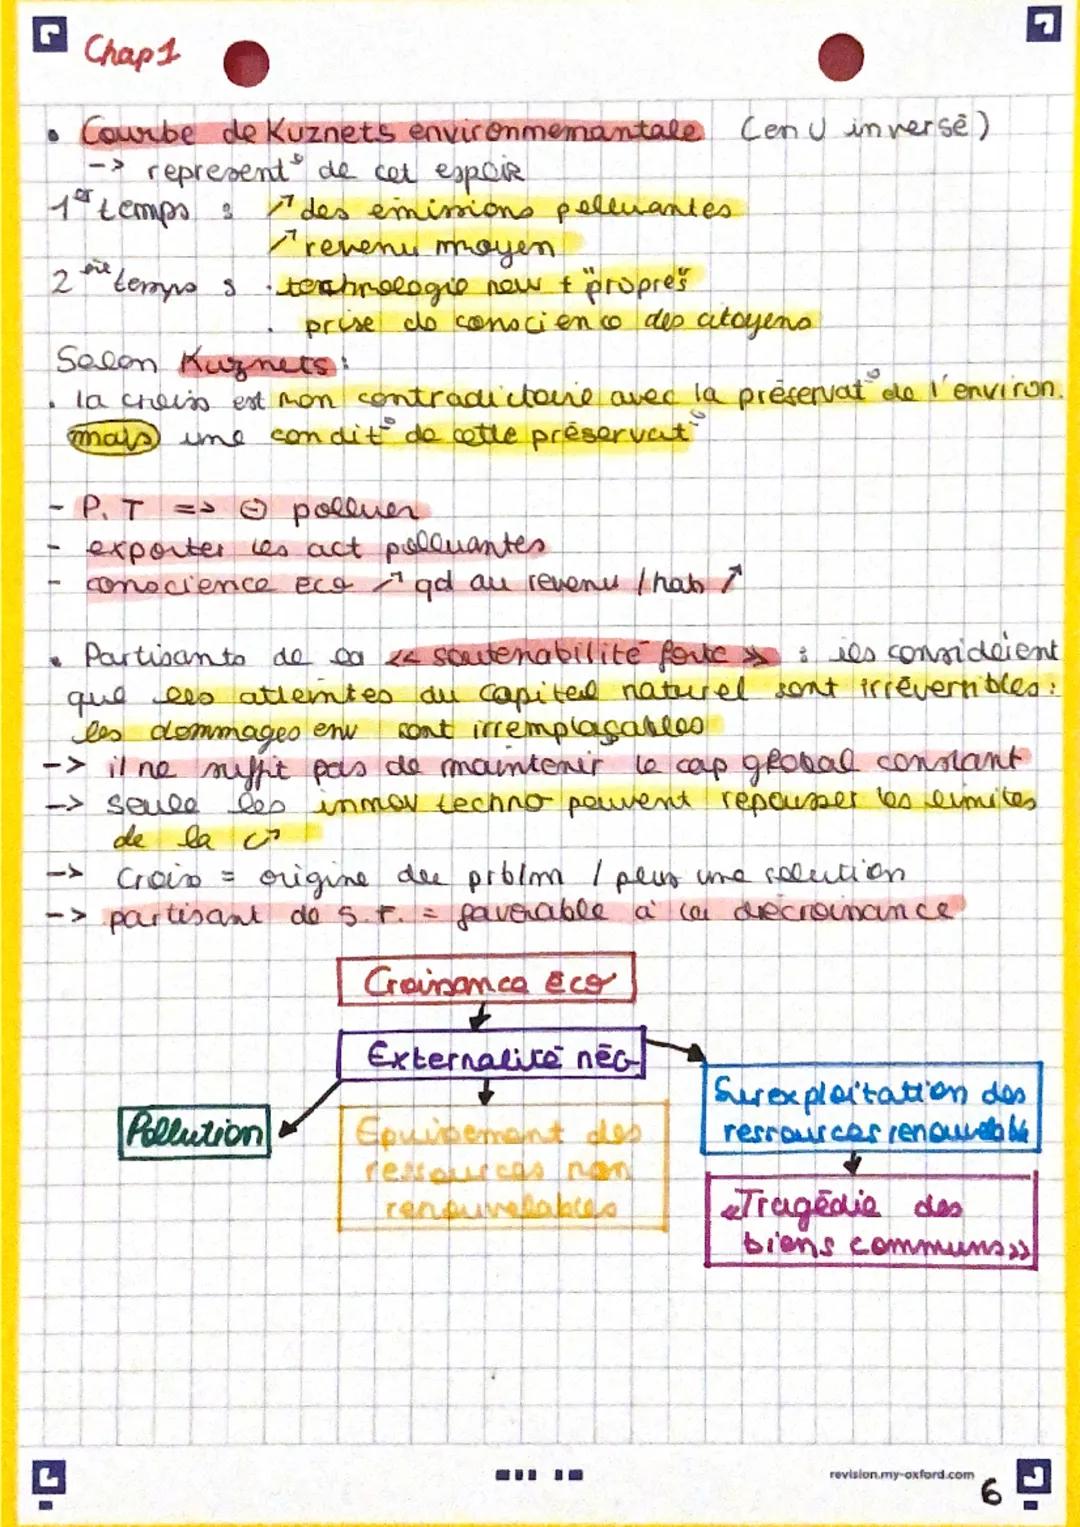 Chap 1
• Courbe de Kuznets environmemantale (en U inversé)
-> represent° de cet espoir
1er temps : ↗ des émissions polluantes
↗ revenu moyen
2ème temps : • technologie new + "propres"
• prise de conscience des citoyens
Selon Kuznets :
• la croiss est non contradictoire avec la préservat° de l'environ.
mais une condit° de cette préservat°
- P.T => ⊖ polluer
- exporter les act polluantes
- conscience éco ↗ qd au revenu / hab ↗
• Partisants de la « soutenabilité forte » : ils considèient
que les atteintes du capital naturel sont irréversibles :
les dommages env sont irremplaçables
-> il ne suffit pas de maintenir le cap global constant
-> seule les innov techno peuvent repousser les limites
de la c↗
-> Croiss = origine du prblm / plus une solution
-> partisant de S.F. = favorable à la décroissance
Croissance éco
Externalité nég
Pollution
Epuisement des
ressources non
renouvelables
Surexploitation des
ressources renouvelable
«Tragédie des
biens communs»
revision.my-oxford.com
6